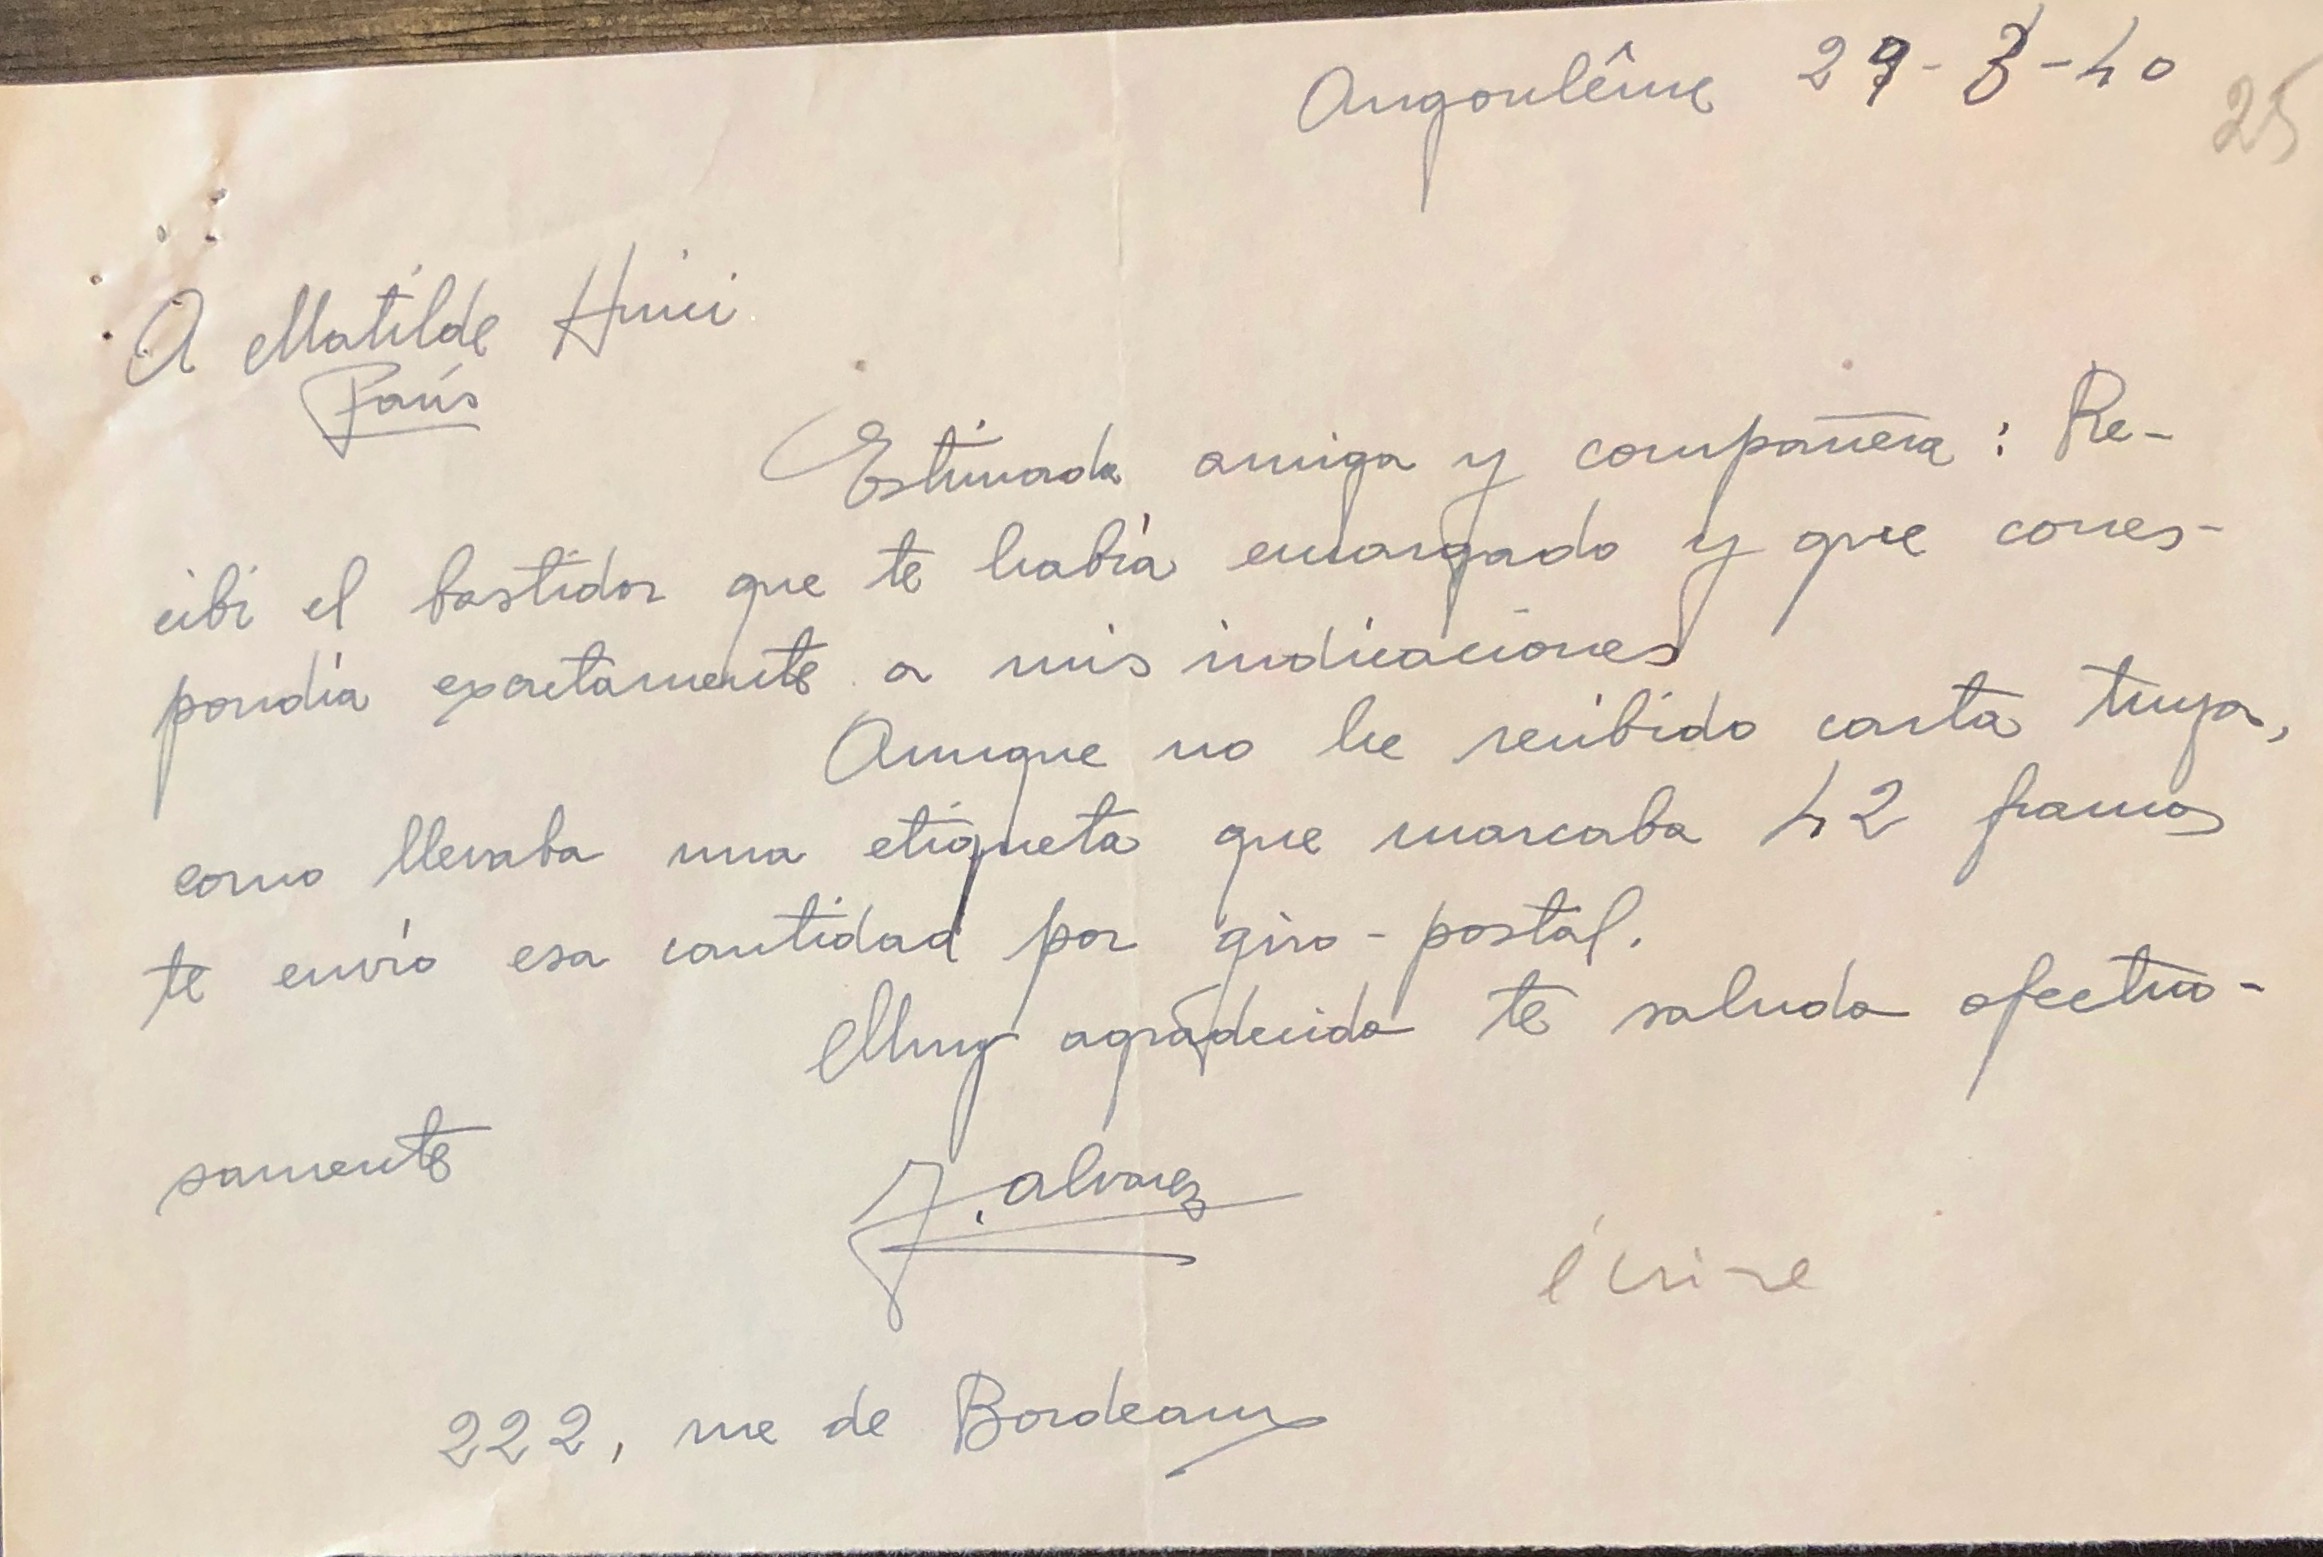 Angoulême 29-3-40
25
A Matilde Huici
París
Estimada amiga y compañera: Re-
cibí el bastidor que te había encargado y que corres-
pondía exactamente a mis indicaciones
Aunque no he recibido carta tuya,
como llevaba una etiqueta que marcaba 42 francos
te envío esa cantidad por giro-postal.
Muy agradecido te saluda afectuo-
samente
J. Alvarez
écrire
222, rue de Bordeaux